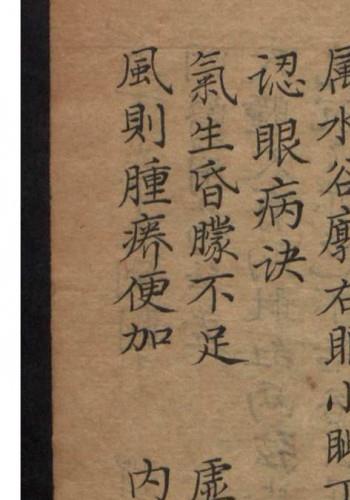 属水谷廓右眼小眦
認眼病诀
氣生昏矇不足 虚
風則腫痒便加 内